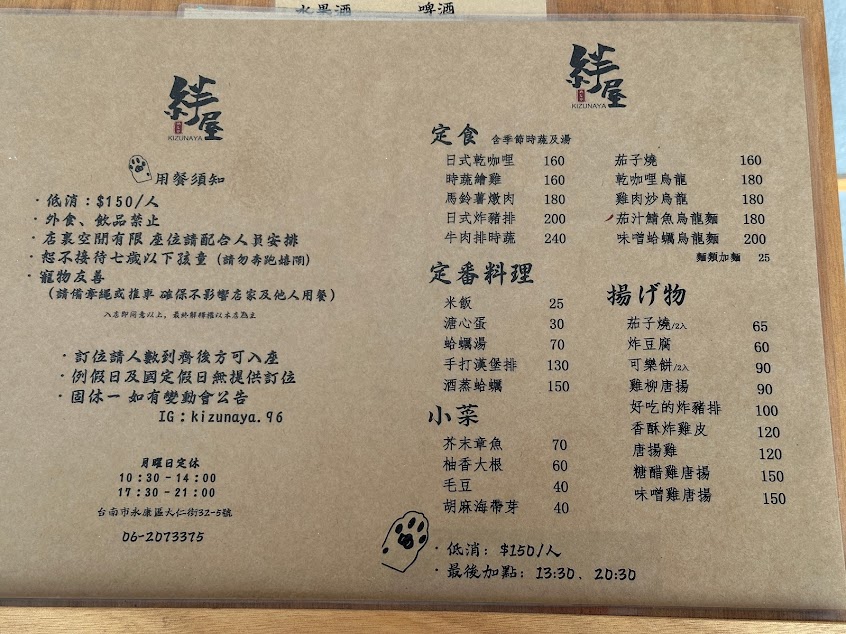 水果酒
啤酒
絆屋
KIZUNAYA
用餐須知
·低消：$150/人
·外食、飲品禁止
·店裏空間有限 座位請配合人員安排
·恕不接待七歲以下孩童（請勿奔跑嬉鬧）
·寵物友善
（請備牽繩或推車 確保不影響店家及他人用餐）
入店即同意以上，最終解釋權以本店為主
·訂位請人數到齊後方可入座
·例假日及國定假日無提供訂位
·固休一 如有變動會公告
IG：kizunaya.96
月曜日定休
10：30-14：00
17：30-21：00
台南市永康區大仁街32-5號
06-2073375
絆屋
KIZUNAYA
定食 含季節時蔬及湯
日式乾咖哩 160
時蔬燴雞 160
馬鈴薯燉肉 180
日式炸豬排 200
牛肉排時蔬 240
茄子燒 160
乾咖哩烏龍 180
雞肉炒烏龍 180
茄汁鯖魚烏龍麵 180
味噌蛤蠣烏龍麵 200
麵類加麵 25
定番料理
米飯 25
溏心蛋 30
蛤蠣湯 70
手打漢堡排 130
酒蒸蛤蠣 150
小菜
芥末章魚 70
柚香大根 60
毛豆 40
胡麻海帶芽 40
揚げ物
茄子燒/2入 65
炸豆腐 60
可樂餅/2入 90
雞柳唐揚 90
好吃的炸豬排 100
香酥炸雞皮 120
唐揚雞 120
糖醋雞唐揚 150
味噌雞唐揚 150
·低消：$150/人
·最後加點：13:30、20:30